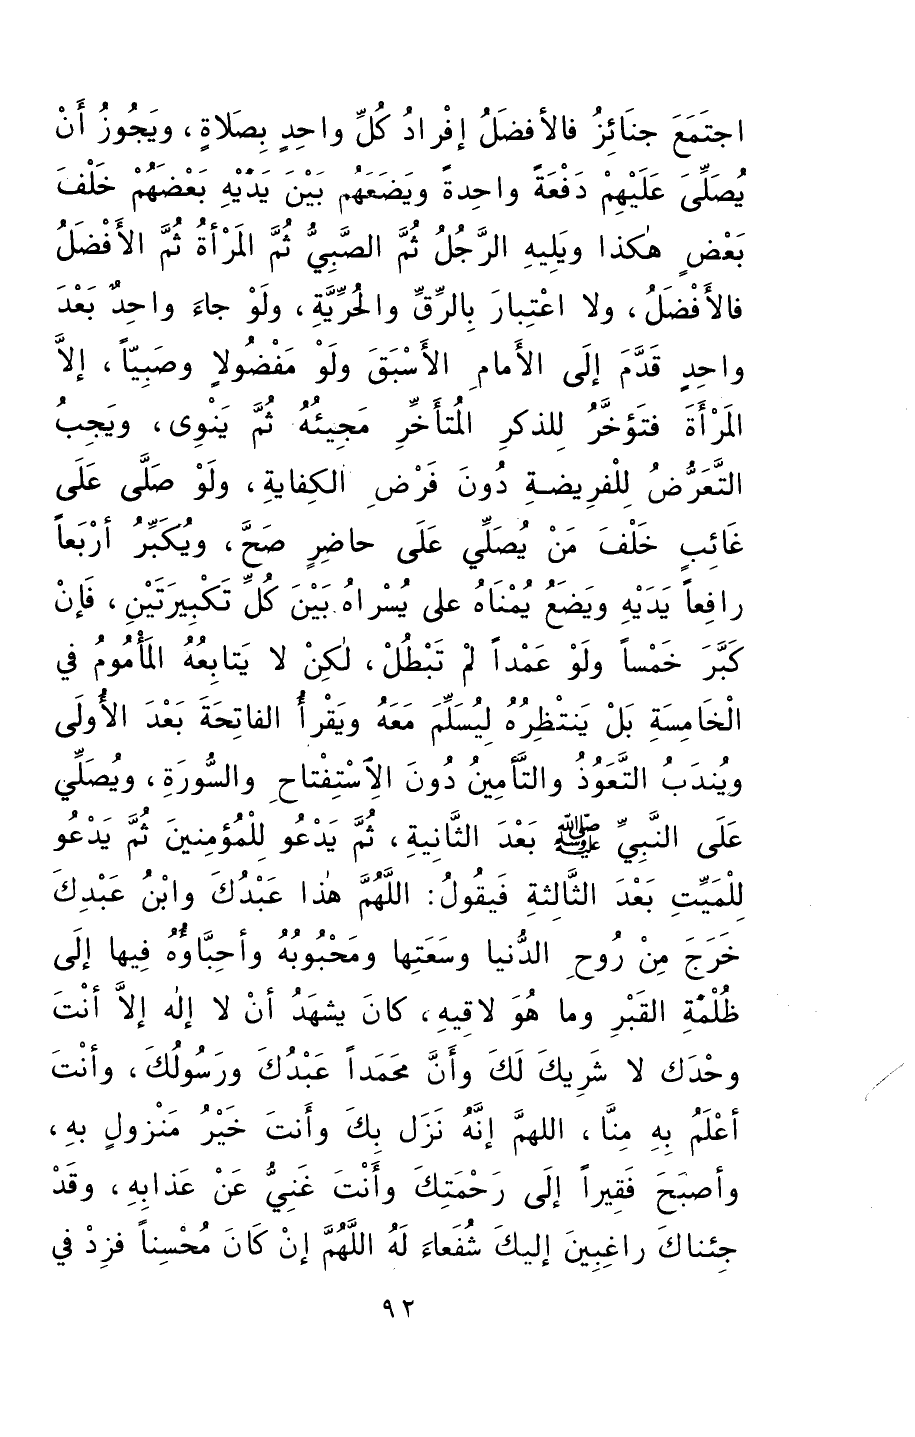 اجتمَعَ جنَائِزُ فالأفضَلُ إفْرادُ كُلِّ واحِدٍ بِصَلاةٍ، ويَجُوزُ أَنْ
يُصَلِّىَ عَلَيْهِمْ دَفْعَةً واحِدةً ويَضَعَهُم بَيْنَ يَدَيْهِ بَعْضَهُمْ خَلْفَ
بَعْضٍ هٰكذا ويَلِيهِ الرَّجُلُ ثُمَّ الصَّبِيُّ ثُمَّ المَرْأةُ ثُمَّ الأَفْضَلُ
فالأفْضَلُ، ولا اعْتِبارَ بِالرِّقِّ والحُرِّيَّةِ، ولَوْ جاءَ واحِدٌ بَعْدَ
واحِدٍ قَدَّمَ إلَى الأَمامِ الأَسْبَقَ ولَوْ مَفْضُولاٍ وصَبِيّاً، إلاَّ
المَرْأةَ فتَؤخَّرُ لِلذكرِ المُتأَخِّرِ مَجِيئُهُ ثُمَّ يَنْوِى، ويَجِبُ
التَّعَرُّضُ لِلْفرِيضةِ دُونَ فَرْضِ الكِفايةِ، ولَوْ صَلَّى عَلَى
غَائِبٍ خَلْفَ مَنْ يُصَلِّي عَلَى حاضِرٍ صَحَّ، ويُكَبِّرُ أرْبَعاً
رافِعاً يَدَيْهِ ويَضَعُ يُمْنَاهُ على يُسْراهُ بَيْنَ كُلِّ تَكْبِيرَتَيْنِ، فَإنْ
كَبَّرَ خَمْساً ولَوْ عَمْداً لَمْ تَبْطُلْ، لٰكِنْ لا يَتابِعُهُ المَأْمُومُ في
الْخَامِسَةِ بَلْ يَنتْظِرُهُ لِيُسَلِّمَ مَعَهُ ويَقْرأُ الفاتِحَةَ بَعْدَ الأُولَى
ويُندَبُ التَّعَوُذُ والتَّأمِينُ دُونَ الِاسْتِفْتاحِ والسُّورَةِ، ويُصَلِّي
عَلَى النَّبِيِّ ﷺ بَعْدَ الثَّانِيةِ، ثُمَّ يَدْعُو لِلْمُؤمِنينَ ثُمَّ يَدْعُو
لِلْمَيِّتِ بَعْدَ الثَّالِثةِ فَيقُولُ: اللَّهُمَّ هٰذا عَبْدُكَ وابْنُ عَبْدِكَ
خَرَجَ مِنْ رُوحِ الدُّنيا وسَعَتِها ومَحْبُوبُهُ وأحِبَّاؤُهُ فِيها إلَى
ظُلْمَةِ القَبْرِ وما هُوَ لاقيهِ، كانَ يشهَدُ أنْ لا إلٰه إلاَّ أنْتَ
وحْدَك لا شَرِيكَ لَكَ وأَنَّ محَمَداً عَبْدُكَ ورَسُولُكَ، وأنْتَ
أعْلَمُ بِهِ مِنَّا، اللهمَّ إنَّهُ نَزَل بِكَ وأَنتَ خَيْرُ مَنْزولٍ بهِ،
وأصبَحَ فَقِيراً إلَى رَحْمَتِكَ وأَنْتَ غَنِيٌّ عَنْ عَذابِهِ، وقَدْ
جِئناكَ راغِبِينَ إليكَ شُفَعاءَ لَهُ اللَّهُمَّ إنْ كَانَ مُحْسِناً فزِدْ في
٩٢